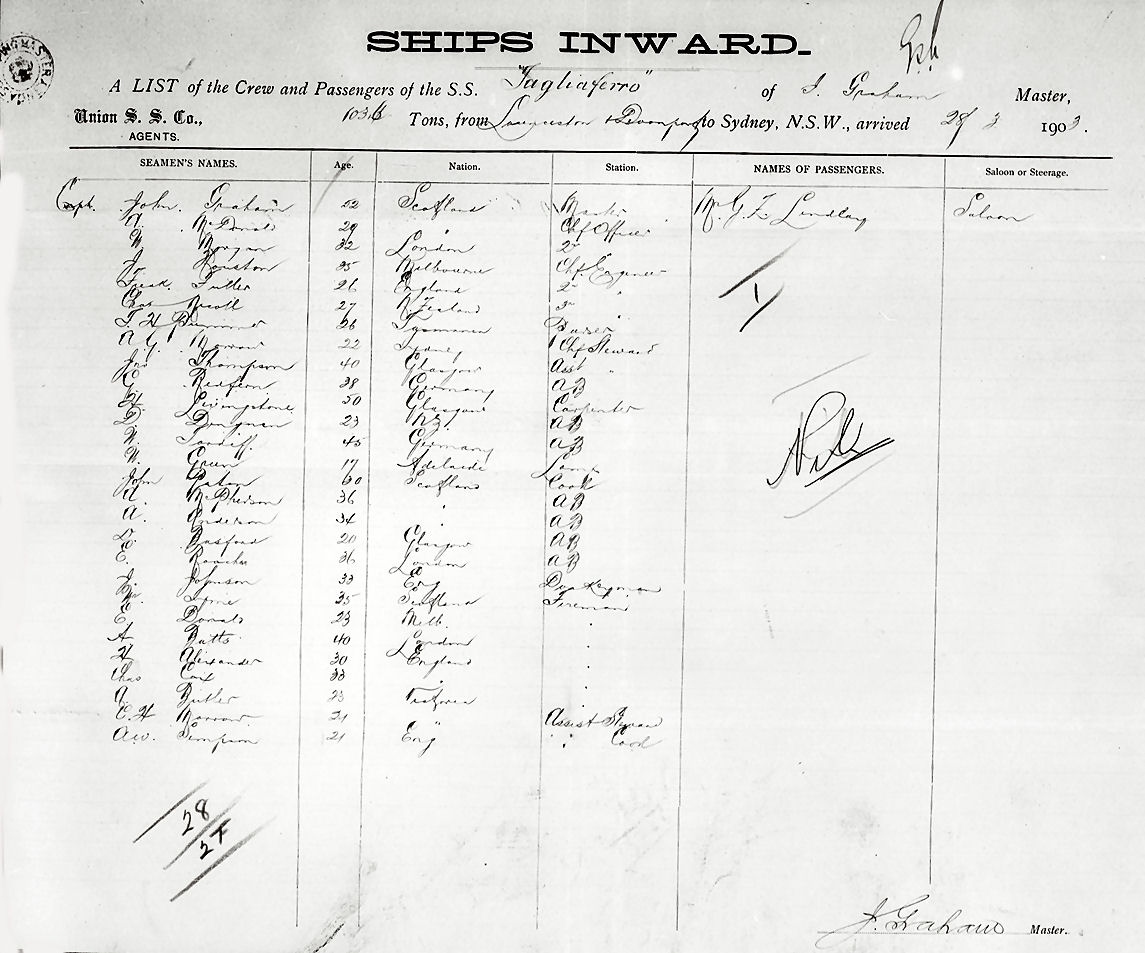 SHIPS INWARD.
A LIST of the Crew and Passengers of the S.S. "Tagliaferro" of J. Graham Master,
Union S. S. Co., Tons, from Launceston & Devonport to Sydney, N.S.W., arrived 28/3 1903.
AGENTS.
SEAMEN'S NAMES. Age. Nation. Station. NAMES OF PASSENGERS. Saloon or Steerage.
Capt. John Graham 52 Scotland Master Mr Lindlay Saloon
McDonald 29 " Chf Officer
W. Morgan 32 London 2nd "
Jo Houston 35 Melbourne Chf Engineer
Fredk. Fuller 26 England 2nd "
Chas Nicoll 27 N Zealand 3rd "
T. H. 26 Tasmania Purser
A. G. Morrow 22 Sydney Chf Steward
Jas Thompson 40 Glasgow Asst "
G. Redfern 38 Germany AB
H. Livingstone 50 Glasgow Carpenter
D. 23 N.Z. AB
W. Tardiff 45 Germany AB
W. Green 17 Adelaide Lamp
John Paton 60 Scotland Cook
McPherson 36 " AB
A. Anderson 34 " AB
Basford 20 Glasgow AB
E. 36 London AB
J. Johnson 33 Eng Donkeyman
35 Scotland Fireman
E. Donald 23 Melb. "
A Butts 40 London "
H Alexander 30 England "
Chas Cox 33 " "
J. Butler 23 "
C. H Morrow 21 " Assist Steward
A.W. Simpson 21 Eng " Cook
1
Nil
28
27
J. Graham Master.